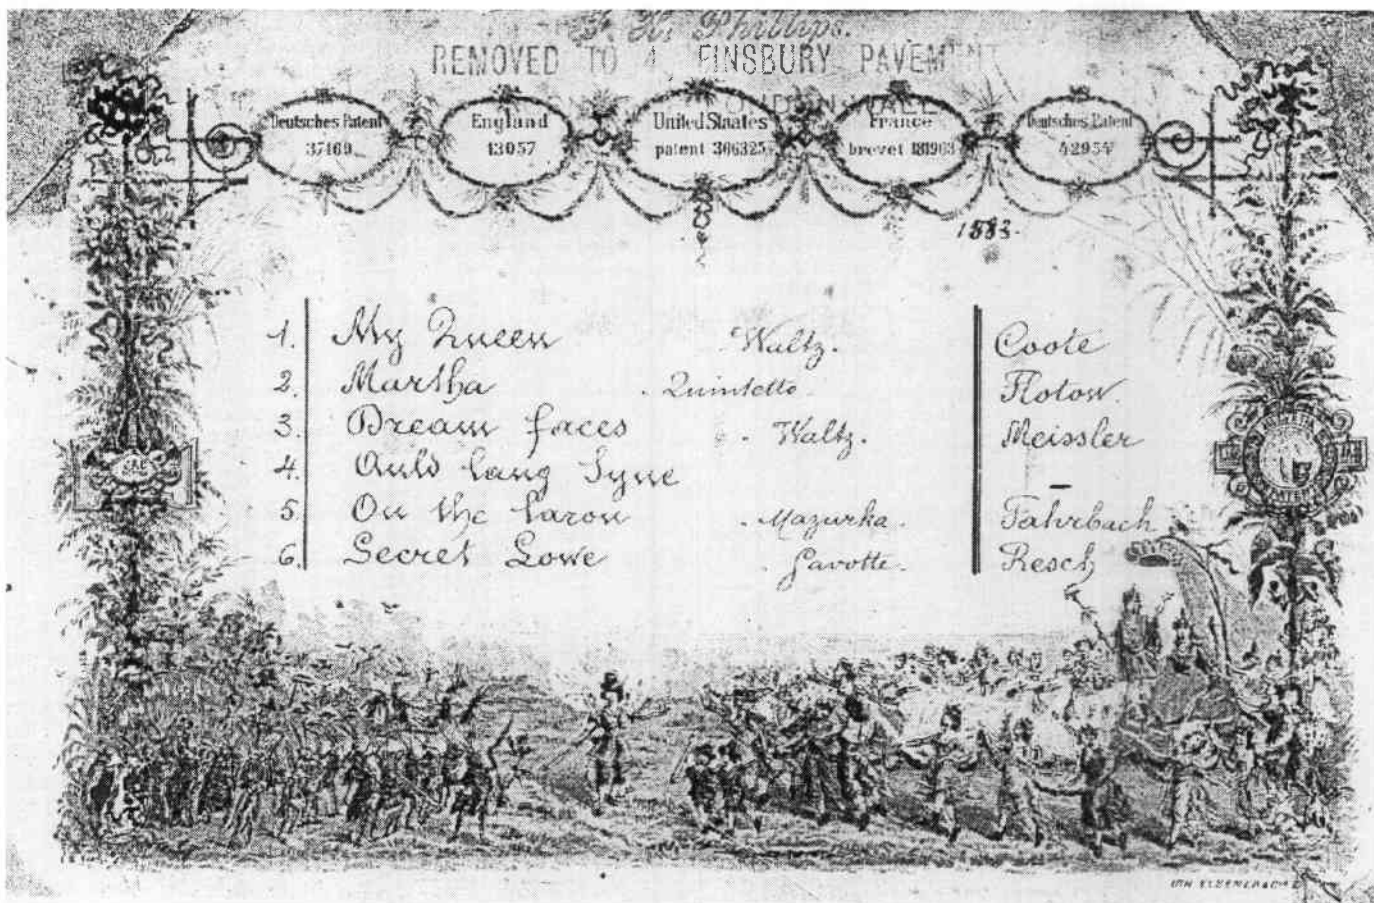 J. H. Phillips.
REMOVED TO 4, FINSBURY PAVEMENT
Deutsches Patent
37169
England
13057
United Staates
patent 366325
France
brevet 181963
Deutsches Patent
42954
1883.
1. My Queen Waltz. Coote
2. Martha Quintetto Flotow.
3. Dream faces Waltz. Meissler
4. Auld lang Syne –
5. On the laron Mazurka. Fahrbach
6. Secret Lowe Gavotte. Resch
HELVETIA